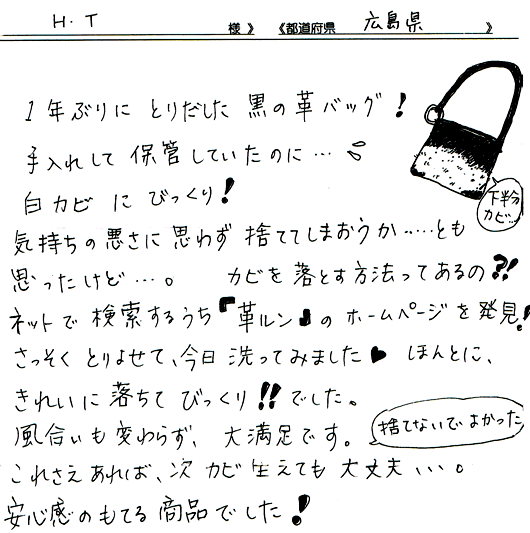 H.T 様》 《都道府県 広島県 》
1年ぶりに とりだした 黒の革バッグ!
手入れして 保管していたのに…
白カビ に びっくり!
下半分
カビ…
気持ちの悪さに 思わず 捨ててしまおうか……とも
思ったけど…。 カビを 落とす方法ってあるの?!
ネットで 検索するうち『革ルン』の ホームページを 発見!
さっそく とりよせて、今日 洗ってみました♥ ほんとに、
きれいに 落ちて びっくり!!でした。
風合いも 変わらず、 大満足です。
捨てないで よかった
これさえ あれば、次 カビ 生えても 大丈夫、、、。
安心感の もてる 商品でした!